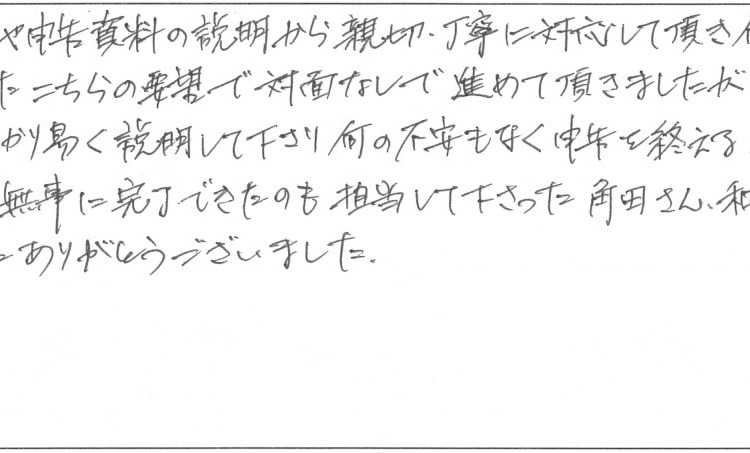 や申告資料の説明から親切・丁寧に対応して頂き
た こちらの要望で対面なしで進めて頂きましたが
かり易く説明して下さり何の不安もなく申告を終える
無事に完了できたのも担当して下さった角田さん、和
にありがとうございました.